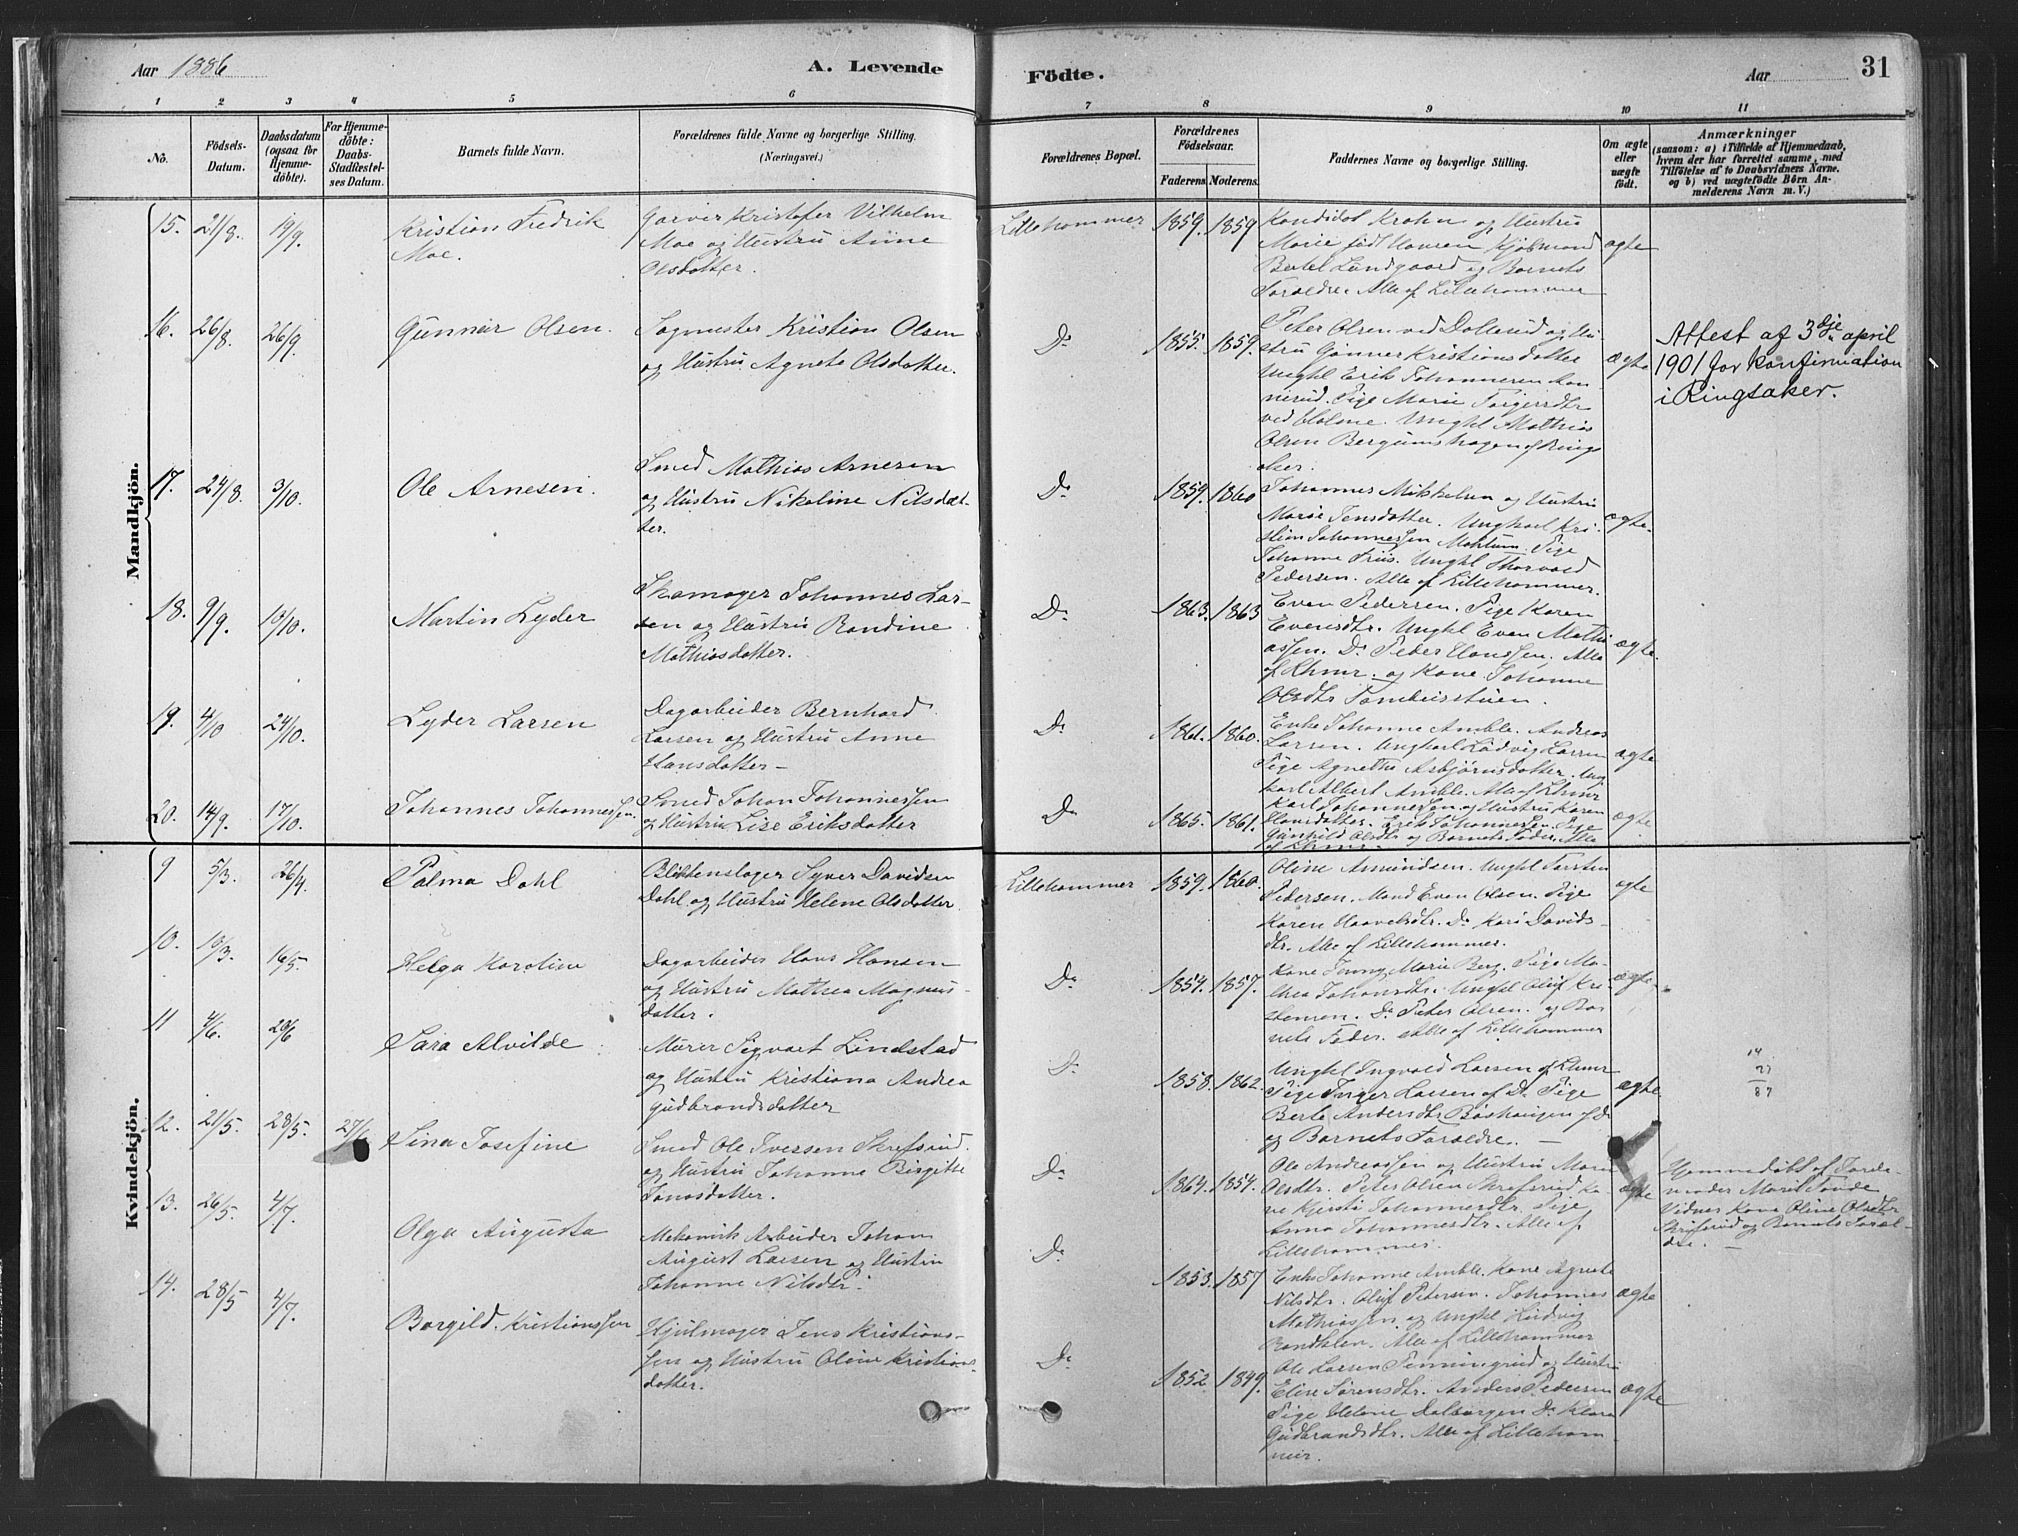 Aar 1886
A. Levende
Födte.
Aar
31
1 2 3 4 5 6 7 8 9 10 11
No.
Födsels-
Datum.
Daabsdatum
(ogsaa for
Hjemme-
döbte).
For Hjemme-
döbte:
Daabs-
Stadfæstel-
ses Datum.
Barnets fulde Navn.
Forældrenes fulde Navne og borgerlige Stilling.
(Næringsvei.)
Forældrenes Bopæl.
Forældrenes
Födselsaar.
Faderens. Moderens.
Faddernes Navne og borgerlige Stilling.
Om ægte
eller
uægte
födt.
Anmærkninger
(saasom: a) i Tilfælde af Hjemmedaab,
hvem der har forrettet samme, med
Tilföielse af to Daabsvidners Navne,
og b) ved uægtefödte Börn An-
melderens Navn m. V.)
Mandkjön.
15. 21/8. 19/9. Kristian Fredrik
Moe.
Garver Kristofer Vilhelm
Moe og Hustru Anne
Olsdatter.
Lillehammer 1859. 1859
Kandidat Krohn og Hustru
Marie født Hansen Kjøbmand
Bertel Lundgaard og Barnets
Forældre. Alle af Lillehammer
ægte
16. 26/8. 26/9. Gunnar Olsen.
Sagmester Kristian Olsen
og Hustru Agnete Olsdatter.
Do 1855. 1859.
Peter Olsen ved og Hu-
stru Gunner Kristiansdatter
Unghl Erik Johannesen
Pige Marie
ved Holme. Unghl Mathias
Olsen Bergumshagen af Rings
aker.
ægte
Attest af 3dje april
1901 for konfirmation
i Ringsaker.
17. 24/8. 3/10. Ole Arnesen.
Smed Mathias Arnesen
og Hustru Nikoline Nilsdat-
ter.
Do 1859. 1860
Johannes Mikkelsen og Hustru
Marie Jensdatter. Ungkarl Kri-
stian Johannessen Mahlum. Pige
Johanne Friis. Unghl Thorvald
Pedersen. Alle af Lillehammer.
ægte.
18. 9/9. 10/10. Martin Lyder
Skomager Johannes Lar-
sen og Hustru Randine
Mathiasdatter.
Do 1863. 1863
Even Pedersen. Pige Karen
Evensdtr. Unghl Even Mathi
assen. Do Peder Hanssen. Alle
af Lhmr. og Kone Johanne
Olsdtr
ægte.
19. 4/10 24/10. Lyder Larsen
Dagarbeider Bernhard
Larsen og Hustru Anne
Hansdatter –
Do 1861. 1860.
Enke Johanne Amble. Andreas
Larsen. Ungkarl Ludvig Larsen
Pige Agnethe Asbjørnsdatter. Ung
karl Albert Amble. Alle af Lhmr
ægte
20. 14/9. 17/10. Johannes Johannessen.
Smed Johan Johannessen
og Hustru Lise Eriksdatter
Do 1865. 1861.
Karl Johannessen og Hustru Karen
Hansdatter. Erik Johannessen. Pige
Gunhild Olsdtr og Barnets Fader. Alle
af Lhmr.
ægte.
Kvindekjön.
9 5/3. 26/4. Palma Dahl
Blikkenslager Syver Davidsen
Dahl og Hustru Helene Olsdatter
Lillehammer 1859. 1860.
Oline Amundsen. Unghl Torsten
Pedersen. Mand Even Olsen. Pige
Karen Haavelsdtr. Do Kari Davids-
dtr. Alle af Lillehammer.
ægte
10. 10/3. 16/5. Helga Karoline
Dagarbeider Hans Hansen
og Hustru Mathea Magnus-
datter.
Do 1854. 1857.
Kone Jenny Marie Berg. Pige Ma-
thea Johansdtr. Unghl Oluf Kri-
stensen. Do Peter Olsen. og Bar
nets Fader. Alle af Lillehammer
ægte.
11 4/6. 20/6 Sara Alvilde
Murer Sigvart Lindstad
og Hustru Kristiana Andrea
Gudbrandsdatter
Do 1858. 1862.
Unghl Ingvald Larsen af Lhmr
Pige Inger Larsen af Do Pige
Berte Andersdtr Boshaugen af do
og Barnets Forældre. –
ægte
14
27
87
12. 21/5. 28/5. 27/6 Lina Josefine
Smed Ole Iversen Skrefsrud
og Hustru Johanne Birgitte
Jonasdatter.
Do 1864. 1854.
Ole Andreassen og Hustru Maren
Olsdtr. Peter Olsen Skrefsrud. Ko-
ne Kjersti Johannesdtr. Pige
Anna Johannesdtr. Alle af
Lillehammer.
ægte
Hjemmedøbt af Jorde-
moder Marit Tande
Vidner Kone Oline Olsdtr
Skrefsrud og Barnets Foræl-
dre. –
13. 26/5. 4/7. Olga Augusta
Mekanisk Arbeider Johan
August Larsen og Hustru
Johanne Nilsdtr.
Do 1853. 1857
Enke Johanne Amble. Kone Agnete
Nilsdtr. Oluf Petersen. Johannes
Mathiassen og Unghl Ludvig
Randklev. Alle af Lillehammer
ægte
14. 28/5 4/7. Borgild. Kristianssen
Hjulmager Jens Kristians-
sen og Hustru Oline Kristians
datter.
Do 1852. 1849.
Ole Larsen og Hustru
Elise Sørensdtr. Anders Pedersen
Pige Helene Dalborgen Do Klara
Gudbrandsdtr. Alle af Lilleham-
mer.
ægte